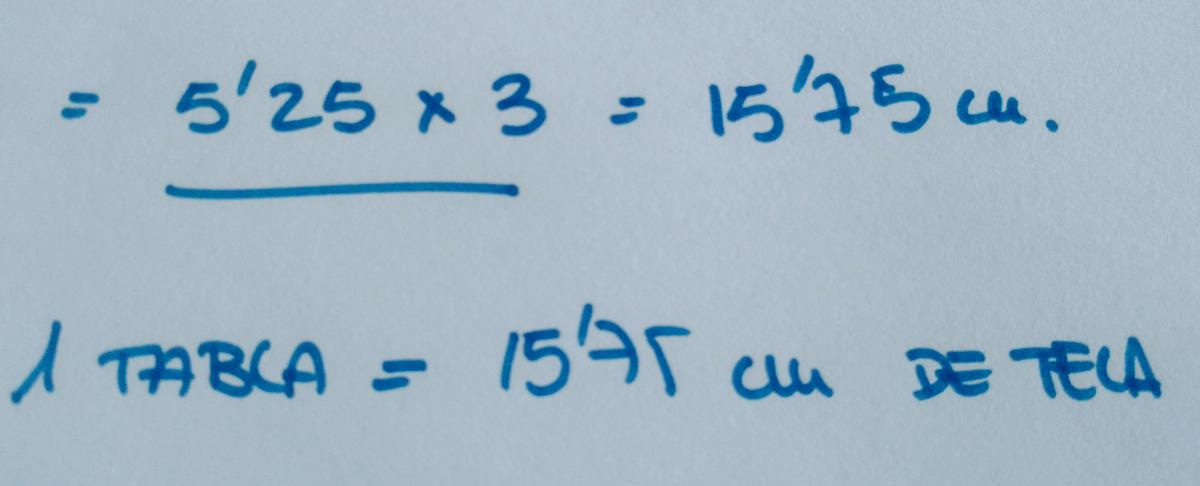 = 5'25 x 3 = 15'75 cm.
1 TABLA = 15'75 cm DE TECA